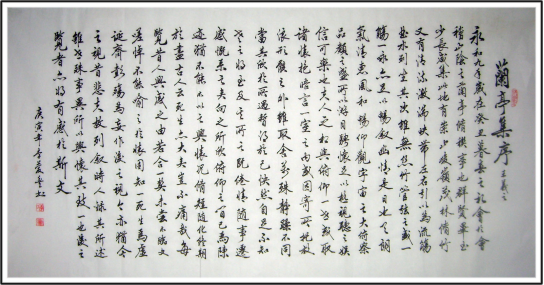 蘭亭集序 王羲之
永和九年歲在癸丑暮春之初會於會
稽山陰之蘭亭脩禊事也群賢畢至
少長咸集此地有崇山峻嶺茂林脩竹
又有清流激湍映帶左右引以為流觴
曲水列坐其次雖無絲竹管弦之盛一
觴一詠亦足以暢敘幽情是日也天朗
氣清惠風和暢仰觀宇宙之大俯察
品類之盛所以游目騁懷足以極視聽之娛
信可樂也夫人之相與俯仰一世或取
諸懷抱晤言一室之內或因寄所託放
浪形骸之外雖取舍萬殊靜躁不同
當其欣於所遇暫得於己快然自足不知
老之將至及其所之既倦情隨事遷
感慨係之矣向之所欣俯仰之間已為陳
迹猶不能不以之興懷況脩短隨化終期
於盡古人云死生亦大矣豈不痛哉每
覽昔人興感之由若合一契未嘗不臨文
嗟悼不能喻之於懷固知一死生為虛
誕齊彭殤為妄作後之視今亦猶今
之視昔悲夫故列敘時人錄其所述
雖世殊事異所以興懷其致一也後之
覽者亦將有感於斯文
庚寅年